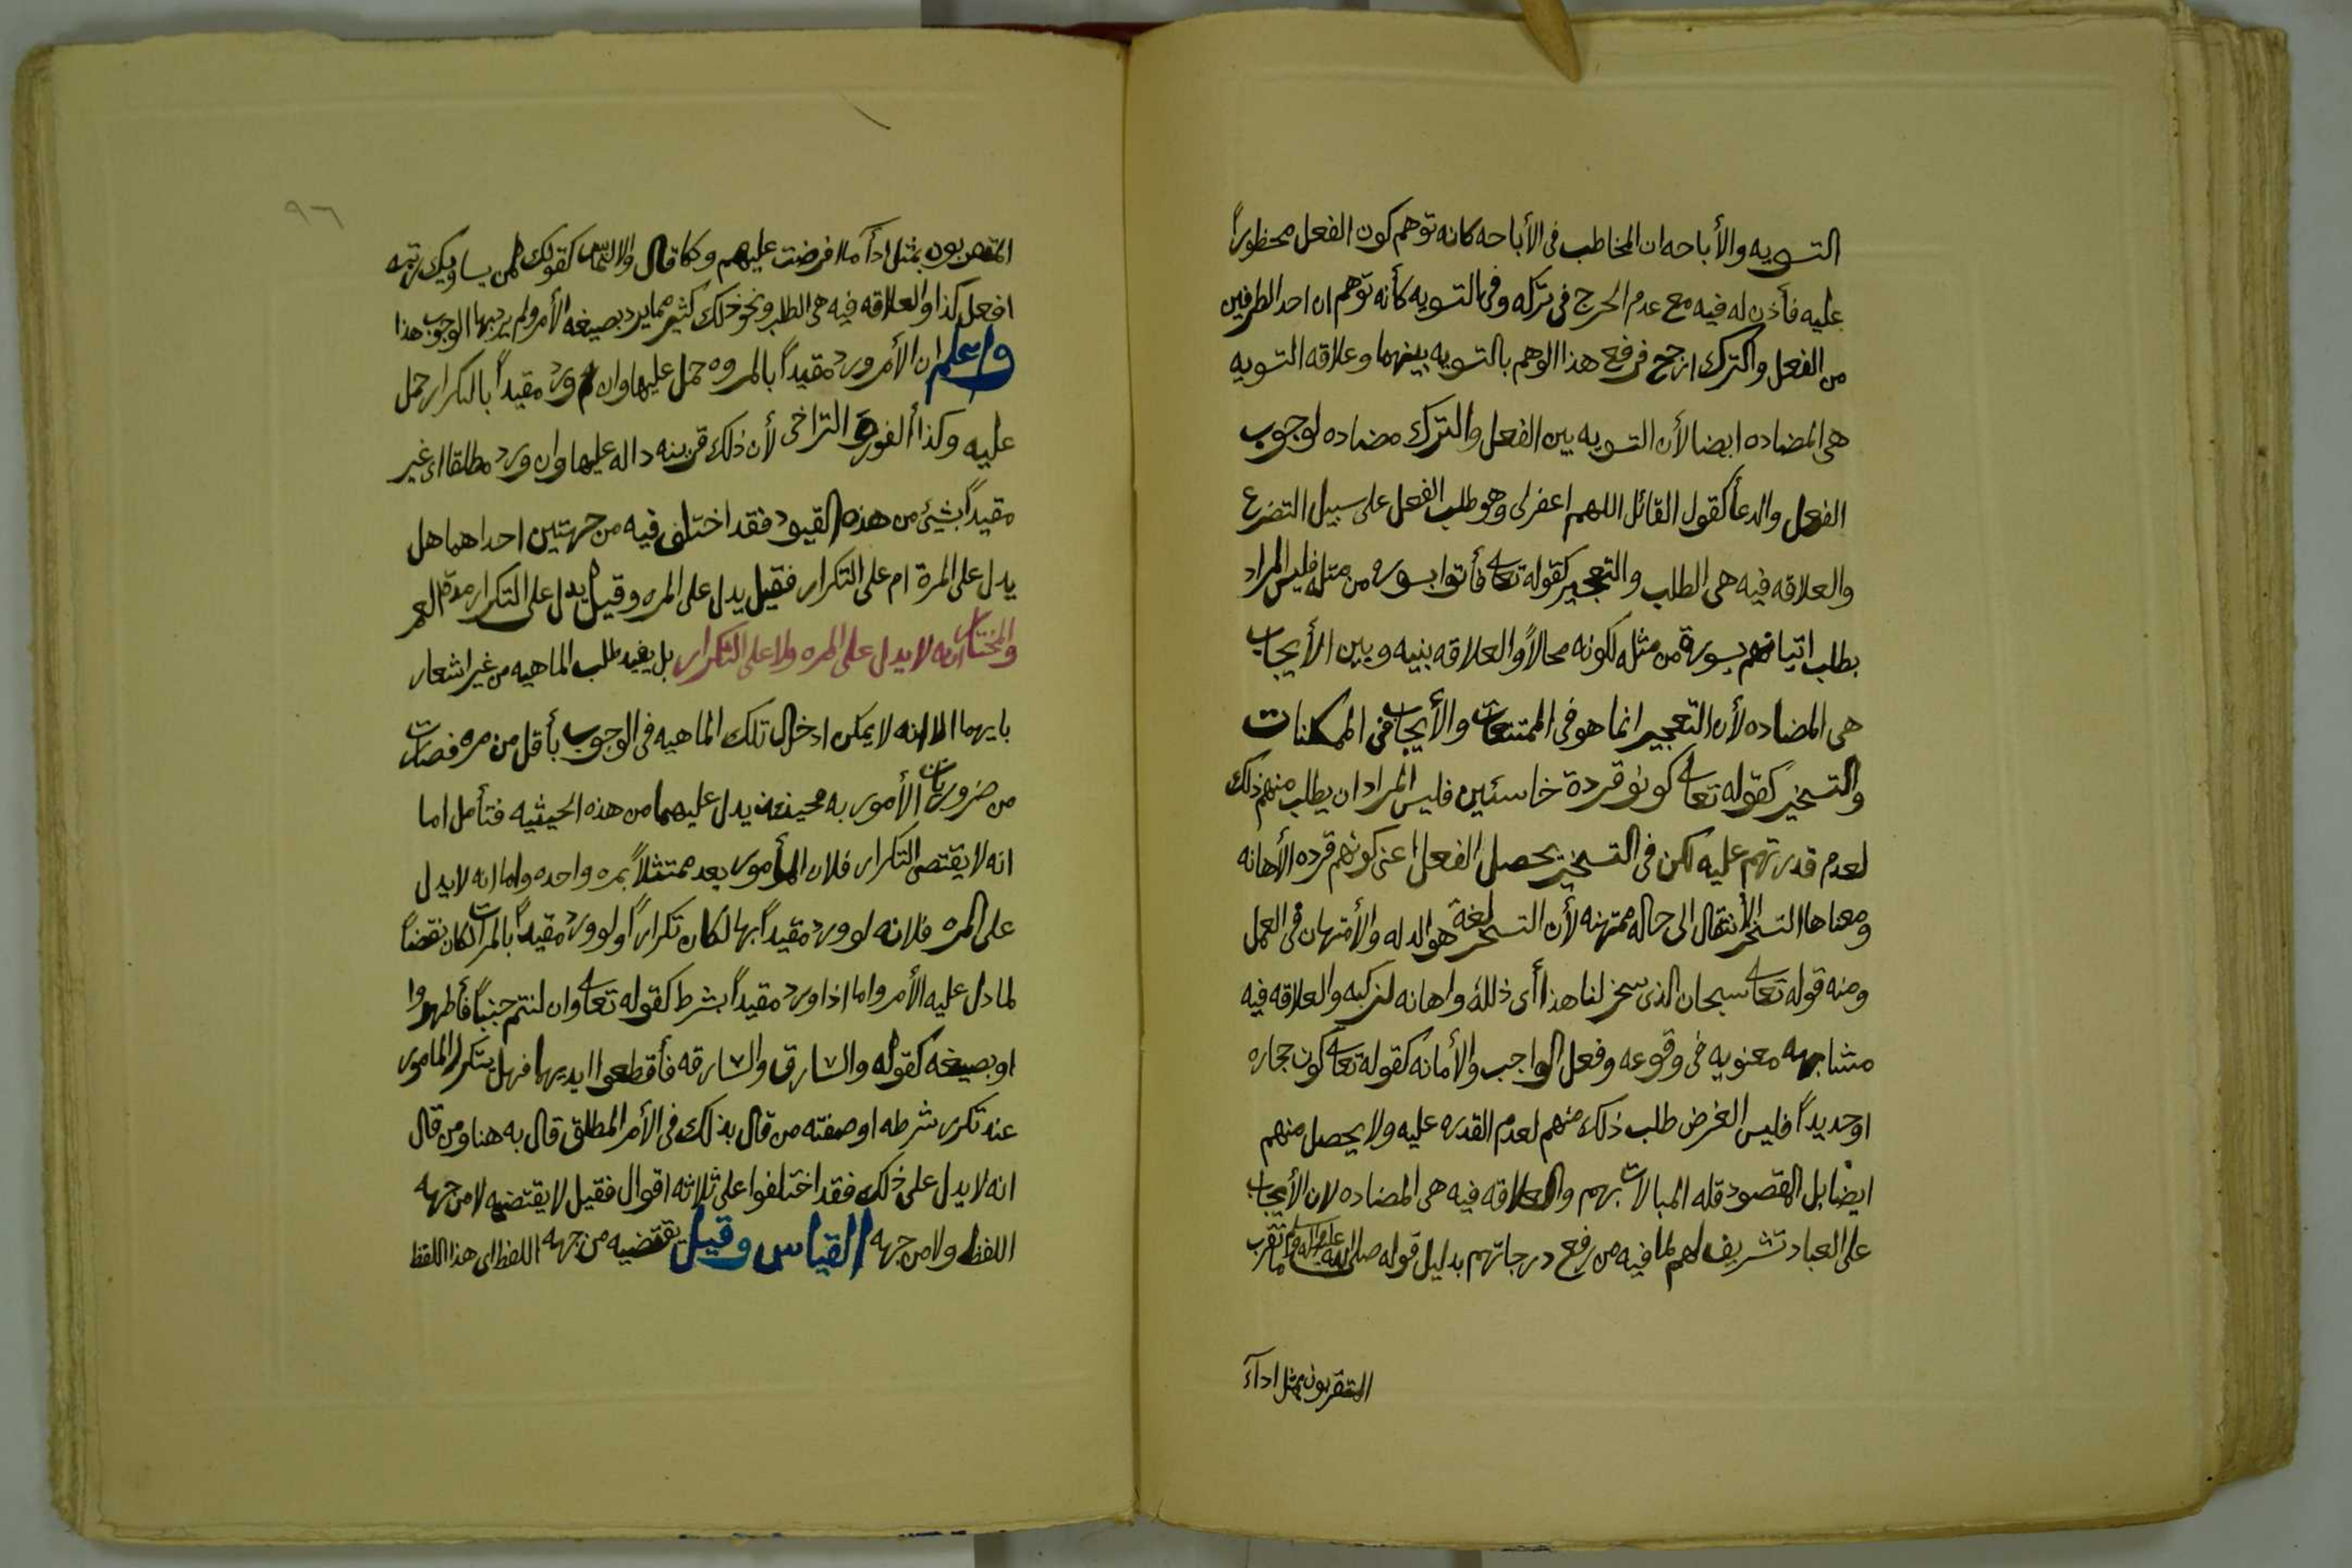 التسويه والأباحه ان المخاطب فى الأباحه كانه توهم كون الفعل محظوراً
عليه فأذن له فيه مع عدم الحرج فى تركه وفى التسويه كأنه توهم ان احد الطرفين
من الفعل والترك ارجح فرفع هذا الوهم بالتسويه بينهما وعلاقه التسويه
هى المضاده ايضا لأن التسويه بين الفعل والترك مضاده لوجوب
الفعل والدعأ كقول القائل اللهم اغفرلى وهو طلب الفعل على سبيل التضرع
والعلاقه فيه هى الطلب والتعجيز كقوله تعالى فأتوا بسوره من مثله فليس المراد
بطلب اتيانهم بسورة من مثله لكونه محالاً والعلاقه بنيه وبين الأيجاب
هى المضاده لأن التعجيز انما هو فى الممتنعات والأيجاب فى الممكنات
والتسخير كقوله تعالى كونو قردة خاسئين فليس المراد ان يطلب منهم ذلك
لعدم قدرتهم عليه لكن فى التسخير يحصل الفعل اعنى كونهم قرده الأهانه
ومعناها التسخر الانتقال الى حاله ممتهنه لأن التسخر لغة هو الدله والأمتهان فى العمل
ومنه قوله تعالى سبحان الذى سخر لنا هذا أى ذلله واهانه لنركبه والعلاقه فيه
مشابهه معنويه فى وقوعه وفعل الواجب والأمانه كقوله تعالى كون حجاره
اوحديداً فليس الغرض طلب ذلك منهم لعدم القدره عليه ولا يحصل منهم
ايضا بل المقصود قله المبالات بهم والعلاقه فيه هى المضاده لان الأيجاب
على العباد تشريف لهم لما فيه من رفع درجاتهم بدليل قوله صلى الله عليه واله وسلم ما تقرب
المتقربون بمثل ادآء
٩٦
المتقربون بمثل ادآ ما افرضت عليهم وكما قال والالتماس كقولك لمن يساويك رتبه
افعل كذا والعلاقه فيه هى الطلب ونحو ذلك كثير مما يرد بصيغه الأمر ولم يرد بها الوجوب هذا
واعلم ان الأمر ورد مقيداً بالمروه حمل عليها وان ورد مقيداً بالتكرار حمل
عليه وكذا ألفور والتراخى لأن ذلك قرينه داله عليها وان ورد مطلقا اى غير
مقيداً بشيئ من هذه القيود فقد اختلف فيه من جهتين احداهما هل
يدل على المرة ام على التكرار فقيل يدل على المره وقيل يدل على التكرار مدة العمر
والمختار انه لا يدل على المره ولا على التكرار بل يفيد طلب الماهيه من غير اشعار
بايهما الا انه لا يمكن ادخال تلك الماهيه فى الوجوب بأقل من مره فصارت
من ضروريات الأمور به فحينئذ يدل عليهما من هذه الحيثيه فتأمل اما
انه لا يقتضى التكرار فلان المأمور يعد ممتثلاً بمره واحده واما انه لا يدل
على المره فلانه لو ورد مقيداً بها لكان تكراراً ولو ورد مقيداً بالمرات لكان نقضاً
لما دل عليه الأمر واما اذا ورد مقيداً بشرط كقوله تعالى وان لنتم جنباً فأطهروا
او بصيغه كقوله والسارق والسارقه فأقطعوا ايديهما فهل يتكرر المامور
عند تكرر شرطه او صفته من قال بذلك فى الأمر المطلق قال به هنا ومن قال
انه لا يدل على ذلك فقد اختلفوا على ثلاثه اقوال فقيل لا يقتضيه لا من جهه
اللفظ ولا من جهه القياس وقيل يقتضيه من جهه اللفظ اى هذا اللفظ